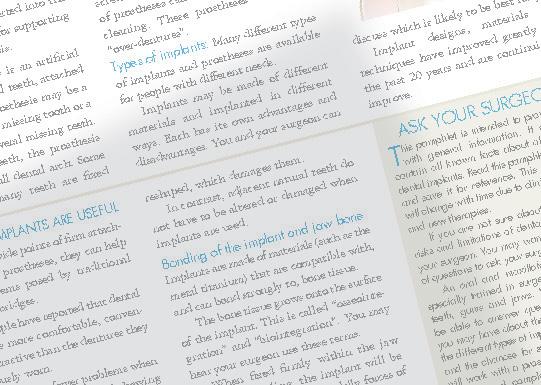 rted into the
for supporting
is.
is an artificial
teeth, attached
prosthesis may be a
missing tooth or a
veral missing teeth.
teeth, the prosthesis
ll dental arch. Some
many teeth are fixed
of prostheses can
cleaning. These prostheses
"over-dentures".
Types of implants: Many different types
of implants and prostheses are available
for people with different needs.
Implants may be made of different
materials and implanted in different
ways. Each has its own advantages and
disadvantages. You and your surgeon can
discuss which is likely to be best for
Implant designs, materials
techniques have improved greatly
the past 20 years and are continui
improve.
MPLANTS ARE USEFUL
vide points of firm attach-
prostheses, they can help
ems posed by traditional
bridges.
ple have reported that dental
more comfortable, conven-
ractive than the dentures they
usly worn.
fewer problems when
reshaped, which damages them.
In contrast, adjacent natural teeth do
not have to be altered or damaged when
implants are used.
Bonding of the implant and jaw bone
Implants are made of materials (such as the
metal titanium) that are compatible with,
and can bond strongly to, bone tissue.
The bone tissue grows onto the surface
of the implant. This is called "osseointe-
gration" and "biointegration". You may
hear your surgeon use these terms.
When fixed firmly within the jaw
implant will be
ASK YOUR SURGEO
This pamphlet is intended to prov
with general information. It
contain all known facts about
dental implants. Read this pamphlet
and save it for reference. This
will change with time due to clin
and new therapies.
If you are not sure about
risks and limitations of denta
your surgeon. You may want
of questions to ask your surg
An oral and maxillofa
specially trained in surge
teeth, gums and jaws.
be able to answer que
you may have about the
the different types of im
and the chances for s
will work with a pros